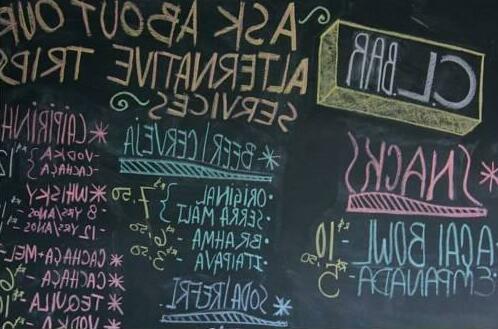 C.L. BAR
*SNACKS
AÇAI BOWL - 10
EMPANADA - 5
ASK ABOUT OUR
ALTERNATIVE TRIPS
SERVICES
*BEER|CERVEJA
• ORIGINAL
• SERRA MALT } 7,50
• BRAHMA - 6,50
• ITAIPAVA - 3,50
*SODA|REFRI
*CAIPIRINH
VODKA
CACHAÇA } 12
*WHISKY
- 8 YRS/ANOS
- 12 YRS/ANOS
*CACHAÇA+MEL
*CACHAÇA - 6
*TEQUILA - 10
*VODKA